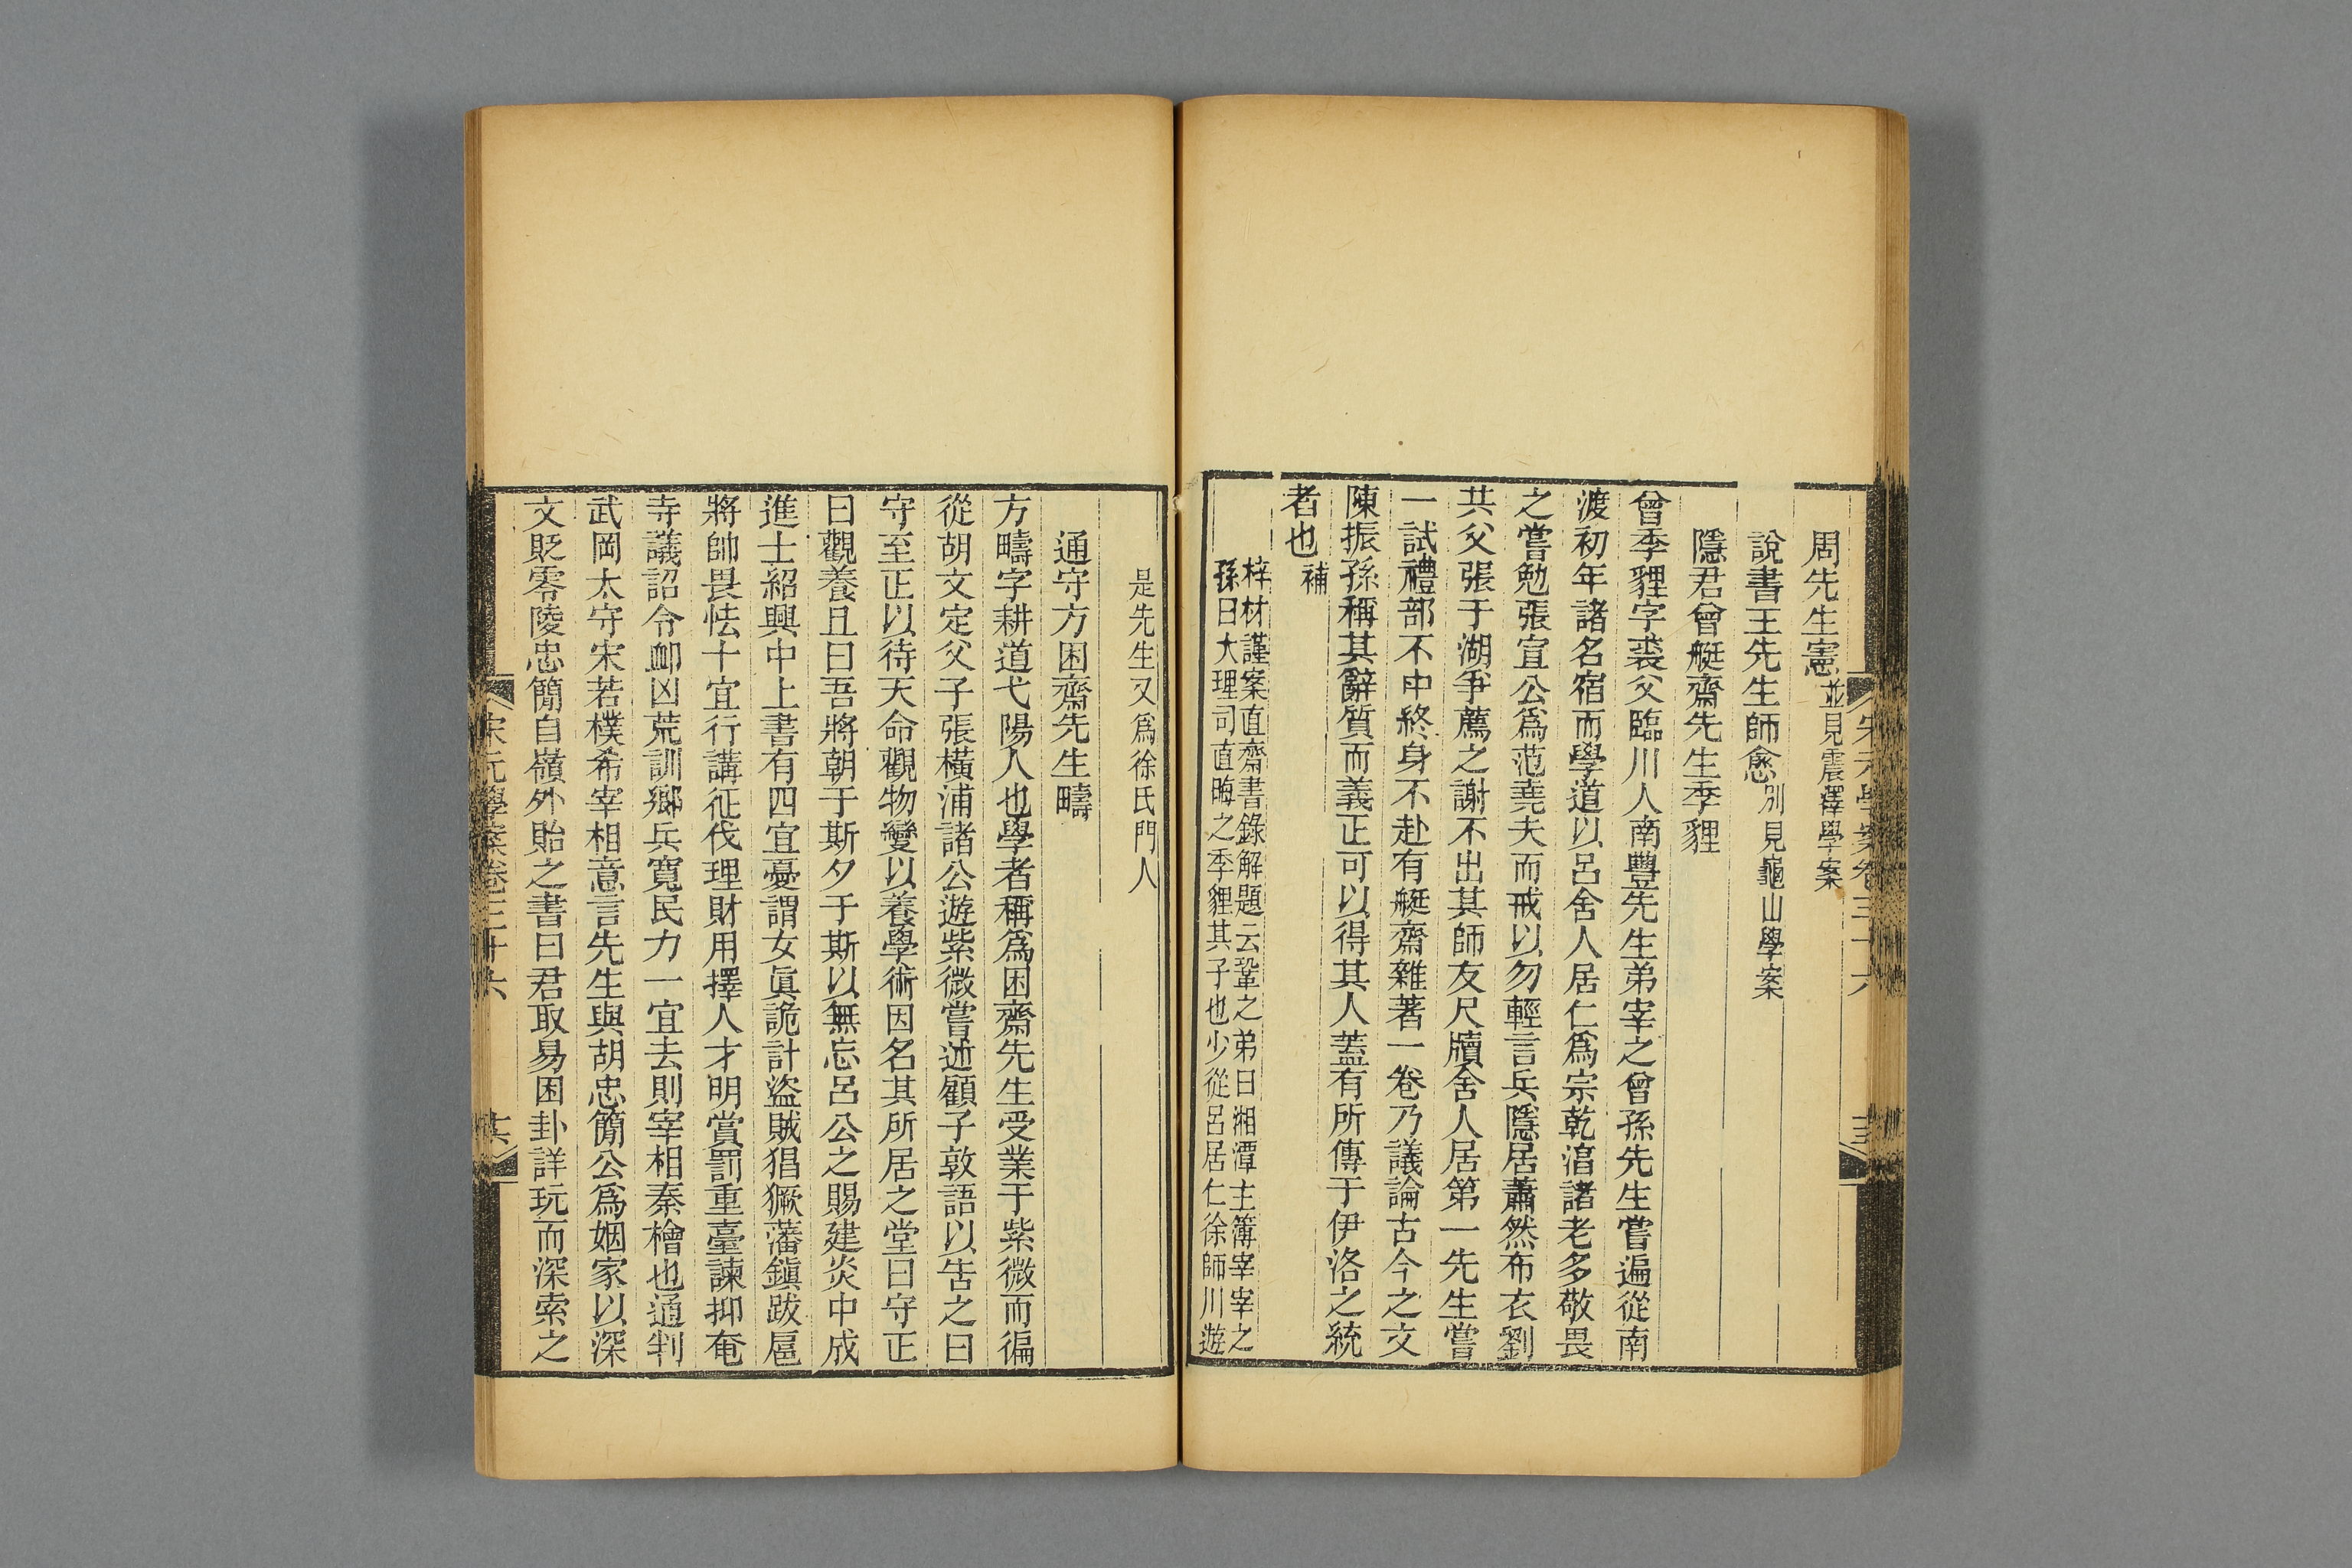 周先生憲並見震澤學案
說書王先生師愈別見龜山學案
隱君曾艇齋先生季貍
曾季貍字裘父臨川人南豐先生弟宰之曾孫先生嘗遍從南
渡初年諸名宿而學道以呂舍人居仁爲宗乾淳諸老多敬畏
之嘗勉張宣公爲范堯夫而戒以勿輕言兵隱居蕭然布衣劉
共父張于湖爭薦之謝不出其師友尺牘舍人居第一先生嘗
一試禮部不中終身不赴有艇齋雜著一卷乃議論古今之文
陳振孫稱其辭質而義正可以得其人蓋有所傳于伊洛之統
者也補
梓材謹案直齋書錄解題云鞏之弟曰湘潭主簿宰宰之
孫曰大理司直晦之季貍其子也少從呂居仁徐師川遊
是先生又爲徐氏門人
通守方困齋先生疇
方疇字耕道弋陽人也學者稱爲困齋先生受業于紫微而徧
從胡文定父子張橫浦諸公遊紫微嘗述顧子敦語以告之曰
守至正以待天命觀物變以養學術因名其所居之堂曰守正
曰觀養且曰吾將朝于斯夕于斯以無忘呂公之賜建炎中成
進士紹興中上書有四宜憂謂女眞詭計盜賊猖獗藩鎭跋扈
將帥畏怯十宜行講征伐理財用擇人才明賞罰重臺諫抑奄
寺議詔令卹凶荒訓鄉兵寬民力一宜去則宰相秦檜也通判
武岡太守宋若樸希宰相意言先生與胡忠簡公爲姻家以深
文貶零陵忠簡自嶺外貽之書曰君取易困卦詳玩而深索之
宋元學案卷三十六